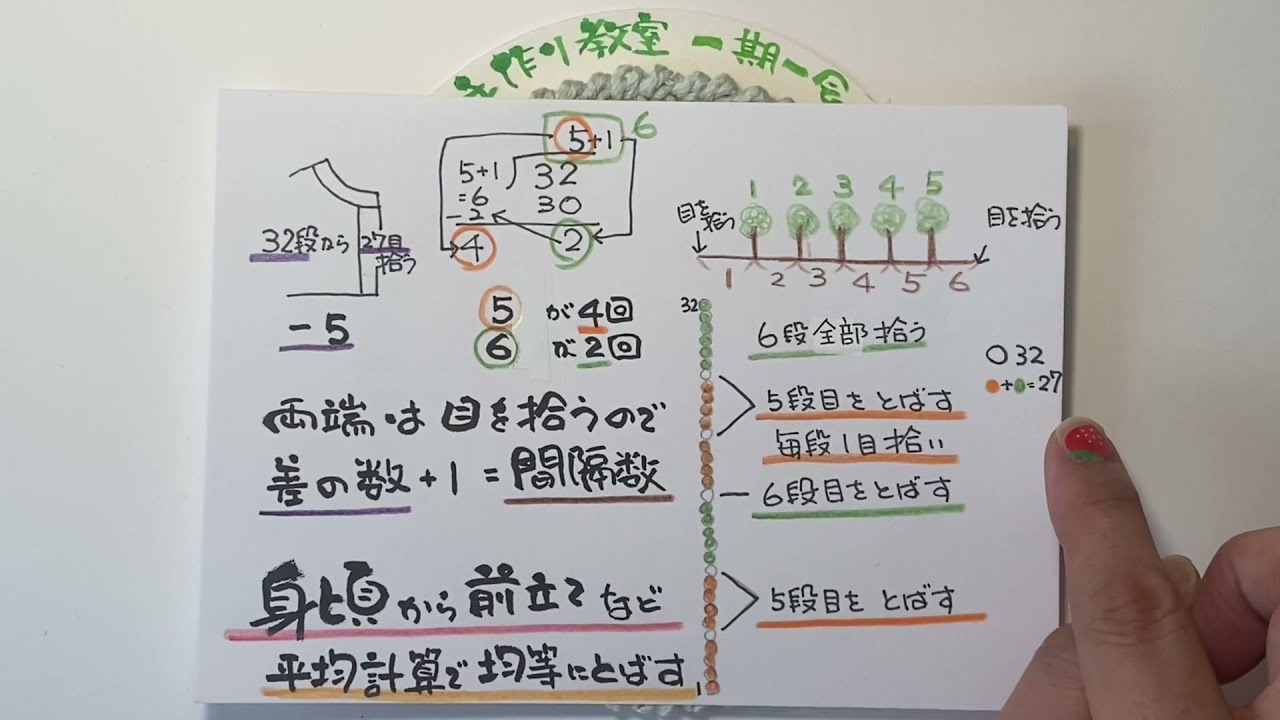 手作り教室 一期一会
32段から
27目
拾う
-5
5+1
6
5+1
=6
-2
4
32
30
2
5が4回
6が2回
両端は目を拾うので
差の数+1=間隔数
身頃から前立てなど
平均計算で均等にとばす
1 2 3 4 5
目を
拾う
目を拾う
1 2 3 4 5 6
32
6段全部拾う
5段目をとばす
毎段1目拾い
6段目をとばす
5段目をとばす
1
○32
●+●=27